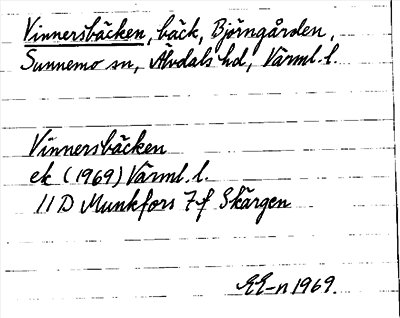 Vinnersbäcken, bäck, Björngården,
Sunnemo sn, Älvdals hd, Värml. l.
Vinnersbäcken
ek (1969) Värml. l.
11 D Munkfors 7f Skärgen
EE-n 1969.